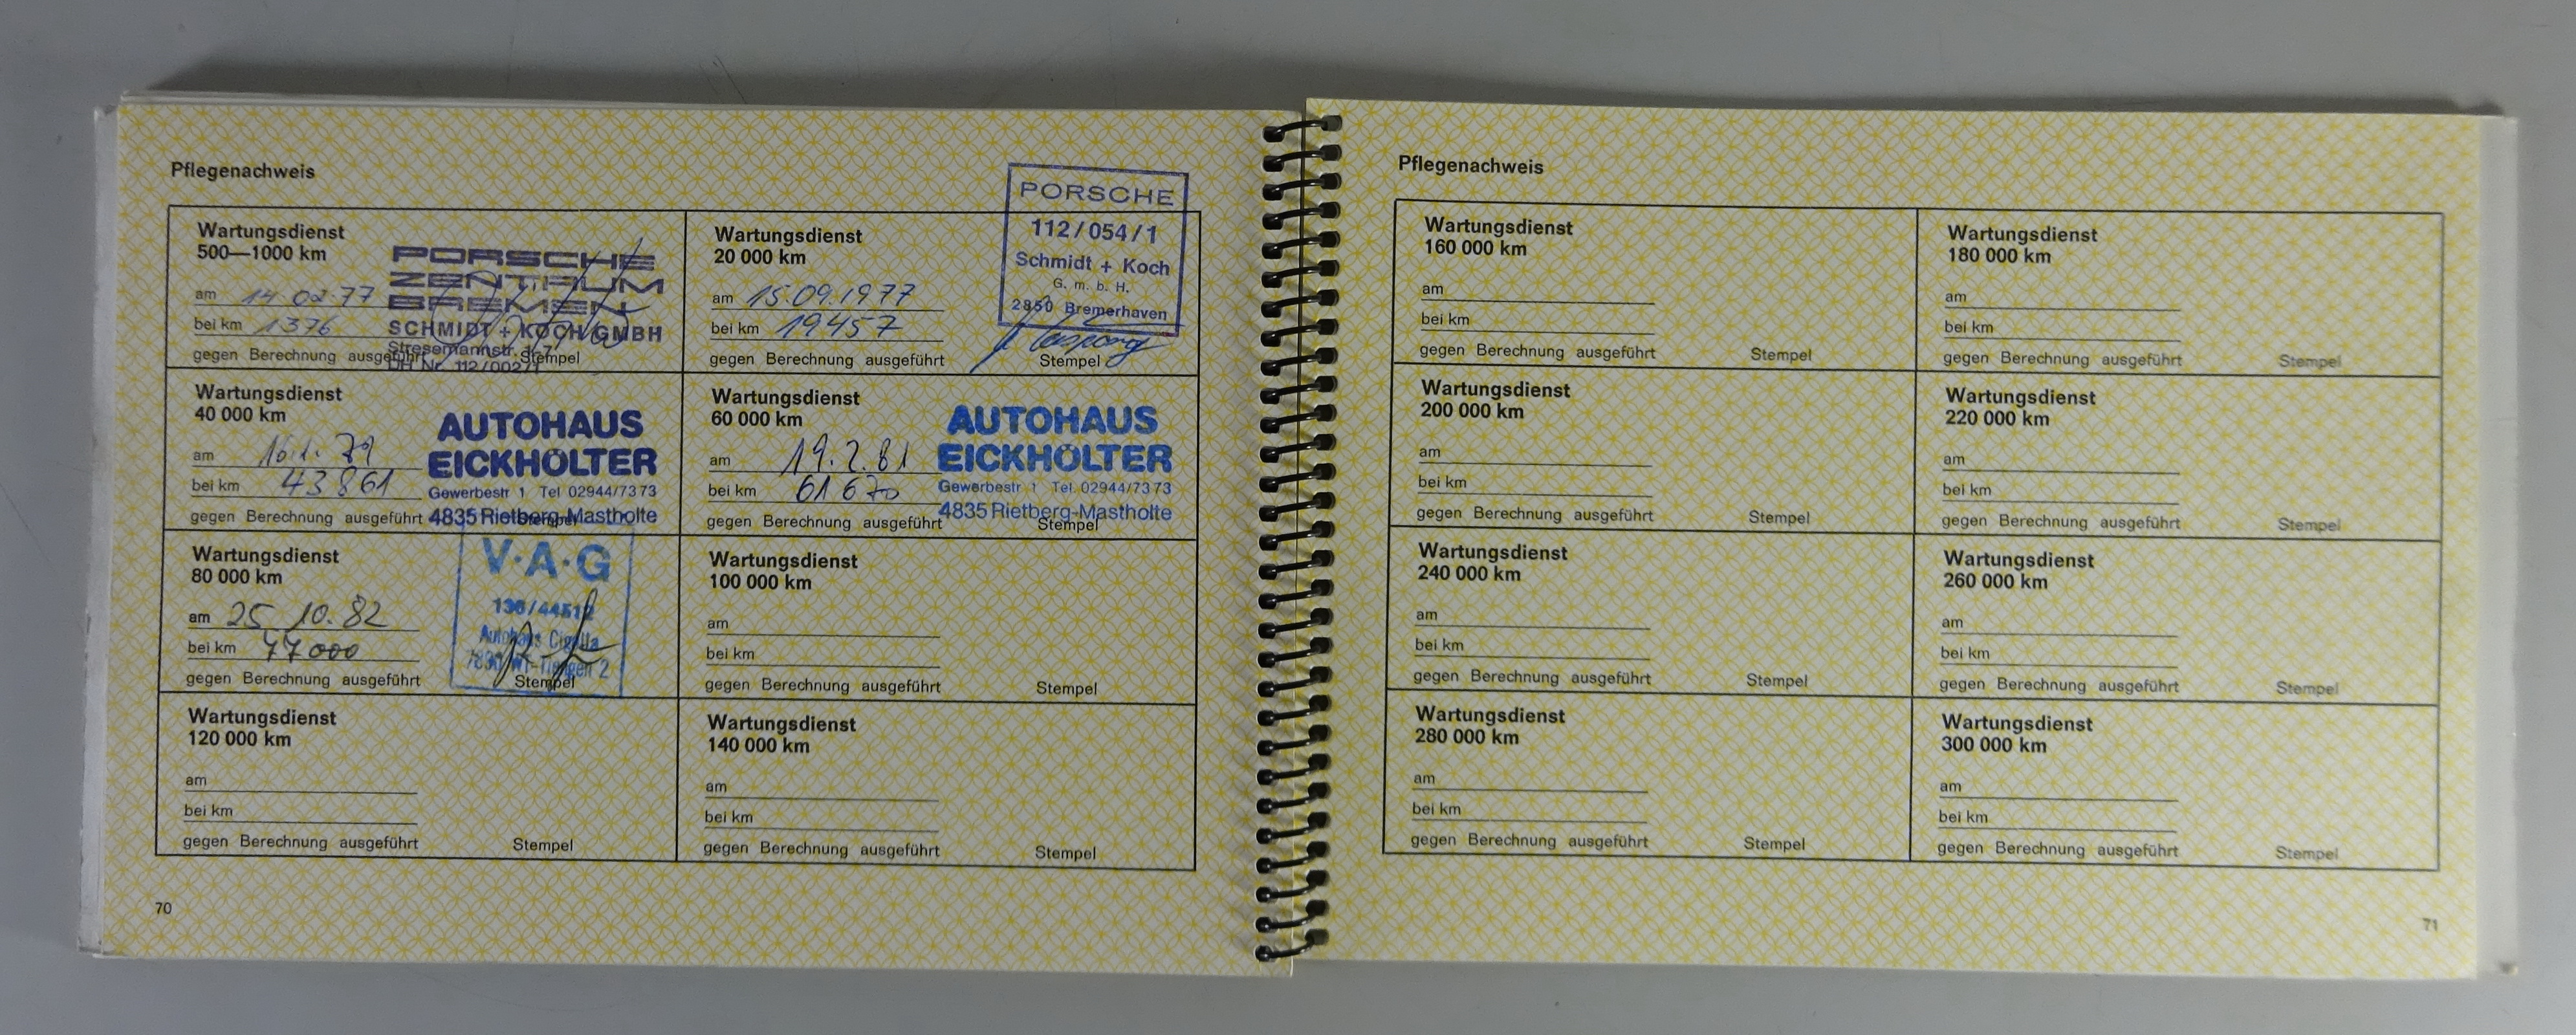 Pflegenachweis
Wartungsdienst
500—1000 km
am 14 02.77
bei km 1376
gegen Berechnung ausgeführt
Stempel
PORSCHE
ZENTRUM
BREMEN
SCHMIDT + KOCH GMBH
Stresemannstr.
DH Nr. 112/002/1
Wartungsdienst
20 000 km
am 15.09.1977
bei km 19457
gegen Berechnung ausgeführt
Stempel
PORSCHE
112/054/1
Schmidt + Koch
G. m. b. H.
2850 Bremerhaven
Wartungsdienst
40 000 km
am 16.1.79
bei km 43861
gegen Berechnung ausgeführt
Stempel
AUTOHAUS
EICKHOLTER
Gewerbestr 1 Tel 02944/7373
4835 Rietberg-Mastholte
Wartungsdienst
60 000 km
am 19.2.81
bei km 61670
gegen Berechnung ausgeführt
Stempel
AUTOHAUS
EICKHOLTER
Gewerbestr 1 Tel. 02944/7373
4835 Rietberg-Mastholte
Wartungsdienst
80 000 km
am 25 10.82
bei km 77000
gegen Berechnung ausgeführt
Stempel
V·A·G
Autohaus
Wartungsdienst
100 000 km
am
bei km
gegen Berechnung ausgeführt
Stempel
Wartungsdienst
120 000 km
am
bei km
gegen Berechnung ausgeführt
Stempel
Wartungsdienst
140 000 km
am
bei km
gegen Berechnung ausgeführt
Stempel
70
Pflegenachweis
Wartungsdienst
160 000 km
am
bei km
gegen Berechnung ausgeführt
Stempel
Wartungsdienst
180 000 km
am
bei km
gegen Berechnung ausgeführt
Stempel
Wartungsdienst
200 000 km
am
bei km
gegen Berechnung ausgeführt
Stempel
Wartungsdienst
220 000 km
am
bei km
gegen Berechnung ausgeführt
Stempel
Wartungsdienst
240 000 km
am
bei km
gegen Berechnung ausgeführt
Stempel
Wartungsdienst
260 000 km
am
bei km
gegen Berechnung ausgeführt
Stempel
Wartungsdienst
280 000 km
am
bei km
gegen Berechnung ausgeführt
Stempel
Wartungsdienst
300 000 km
am
bei km
gegen Berechnung ausgeführt
Stempel
71